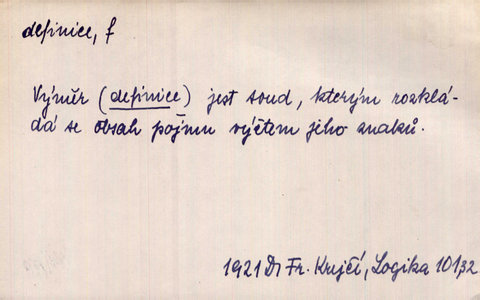 definice, f
Výměr (definice) jest soud, kterým rozklá-
dá se obsah pojmu výčtem jeho znaků.
1921 Dr Fr. Krejčí, Logika 101,32